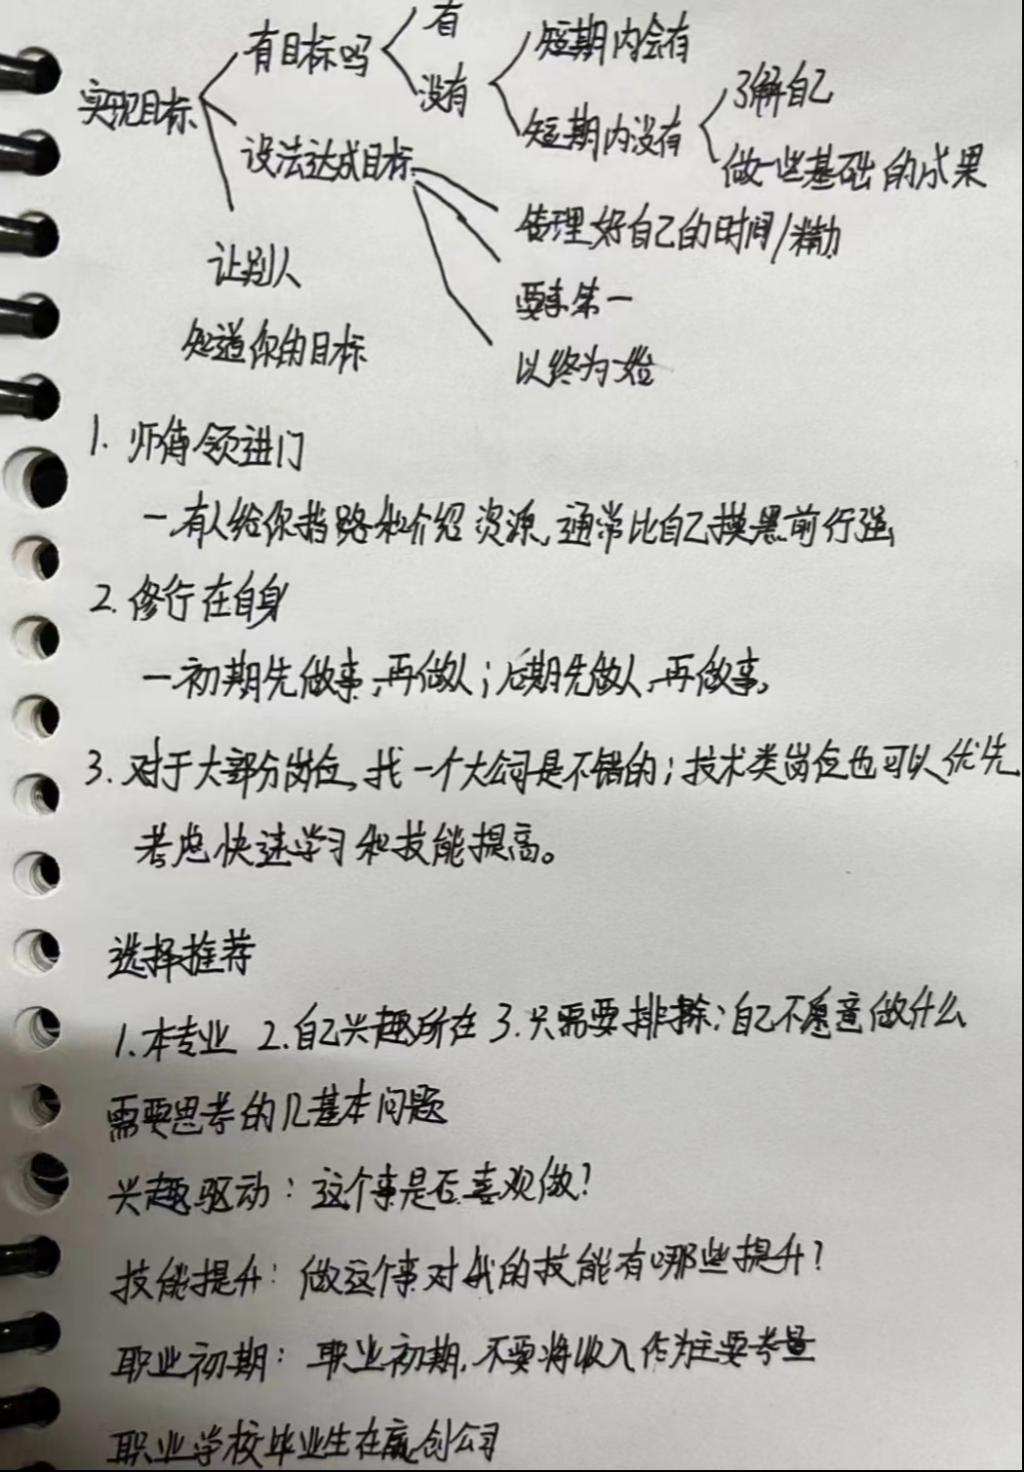 有
有目标吗
短期内会有
没有
实现目标
了解自己
短期内没有
设法达成目标
做一些基础的成果
管理好自己的时间/精力
让别人
要事第一
知道你的目标
以终为始
1. 师傅领进门
一有人给你指路和介绍资源,通常比自己摸黑前行强
2. 修行在自身
一初期先做事,再做人;后期先做人,再做事。
3. 对于大部分岗位,找一个大公司是不错的;技术类岗位也可以优先
考虑快速学习和技能提高。
选择推荐
1.本专业 2.自己兴趣所在 3.只需要排除:自己不愿意做什么
需要思考的几基本问题
兴趣驱动:这个事是否喜欢做?
技能提升:做这个事对我的技能有哪些提升?
职业初期:职业初期,不要将收入作为主要考量
职业学校毕业生在赢创公司